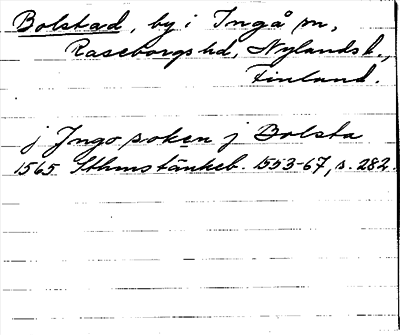 Bolstad, by i Ingå sn,
Raseborgs hd, Nylands l.,
Finland.
j Jngo soken j Bolsta
1565 Sthmstänkeb. 1553-67, s. 282.